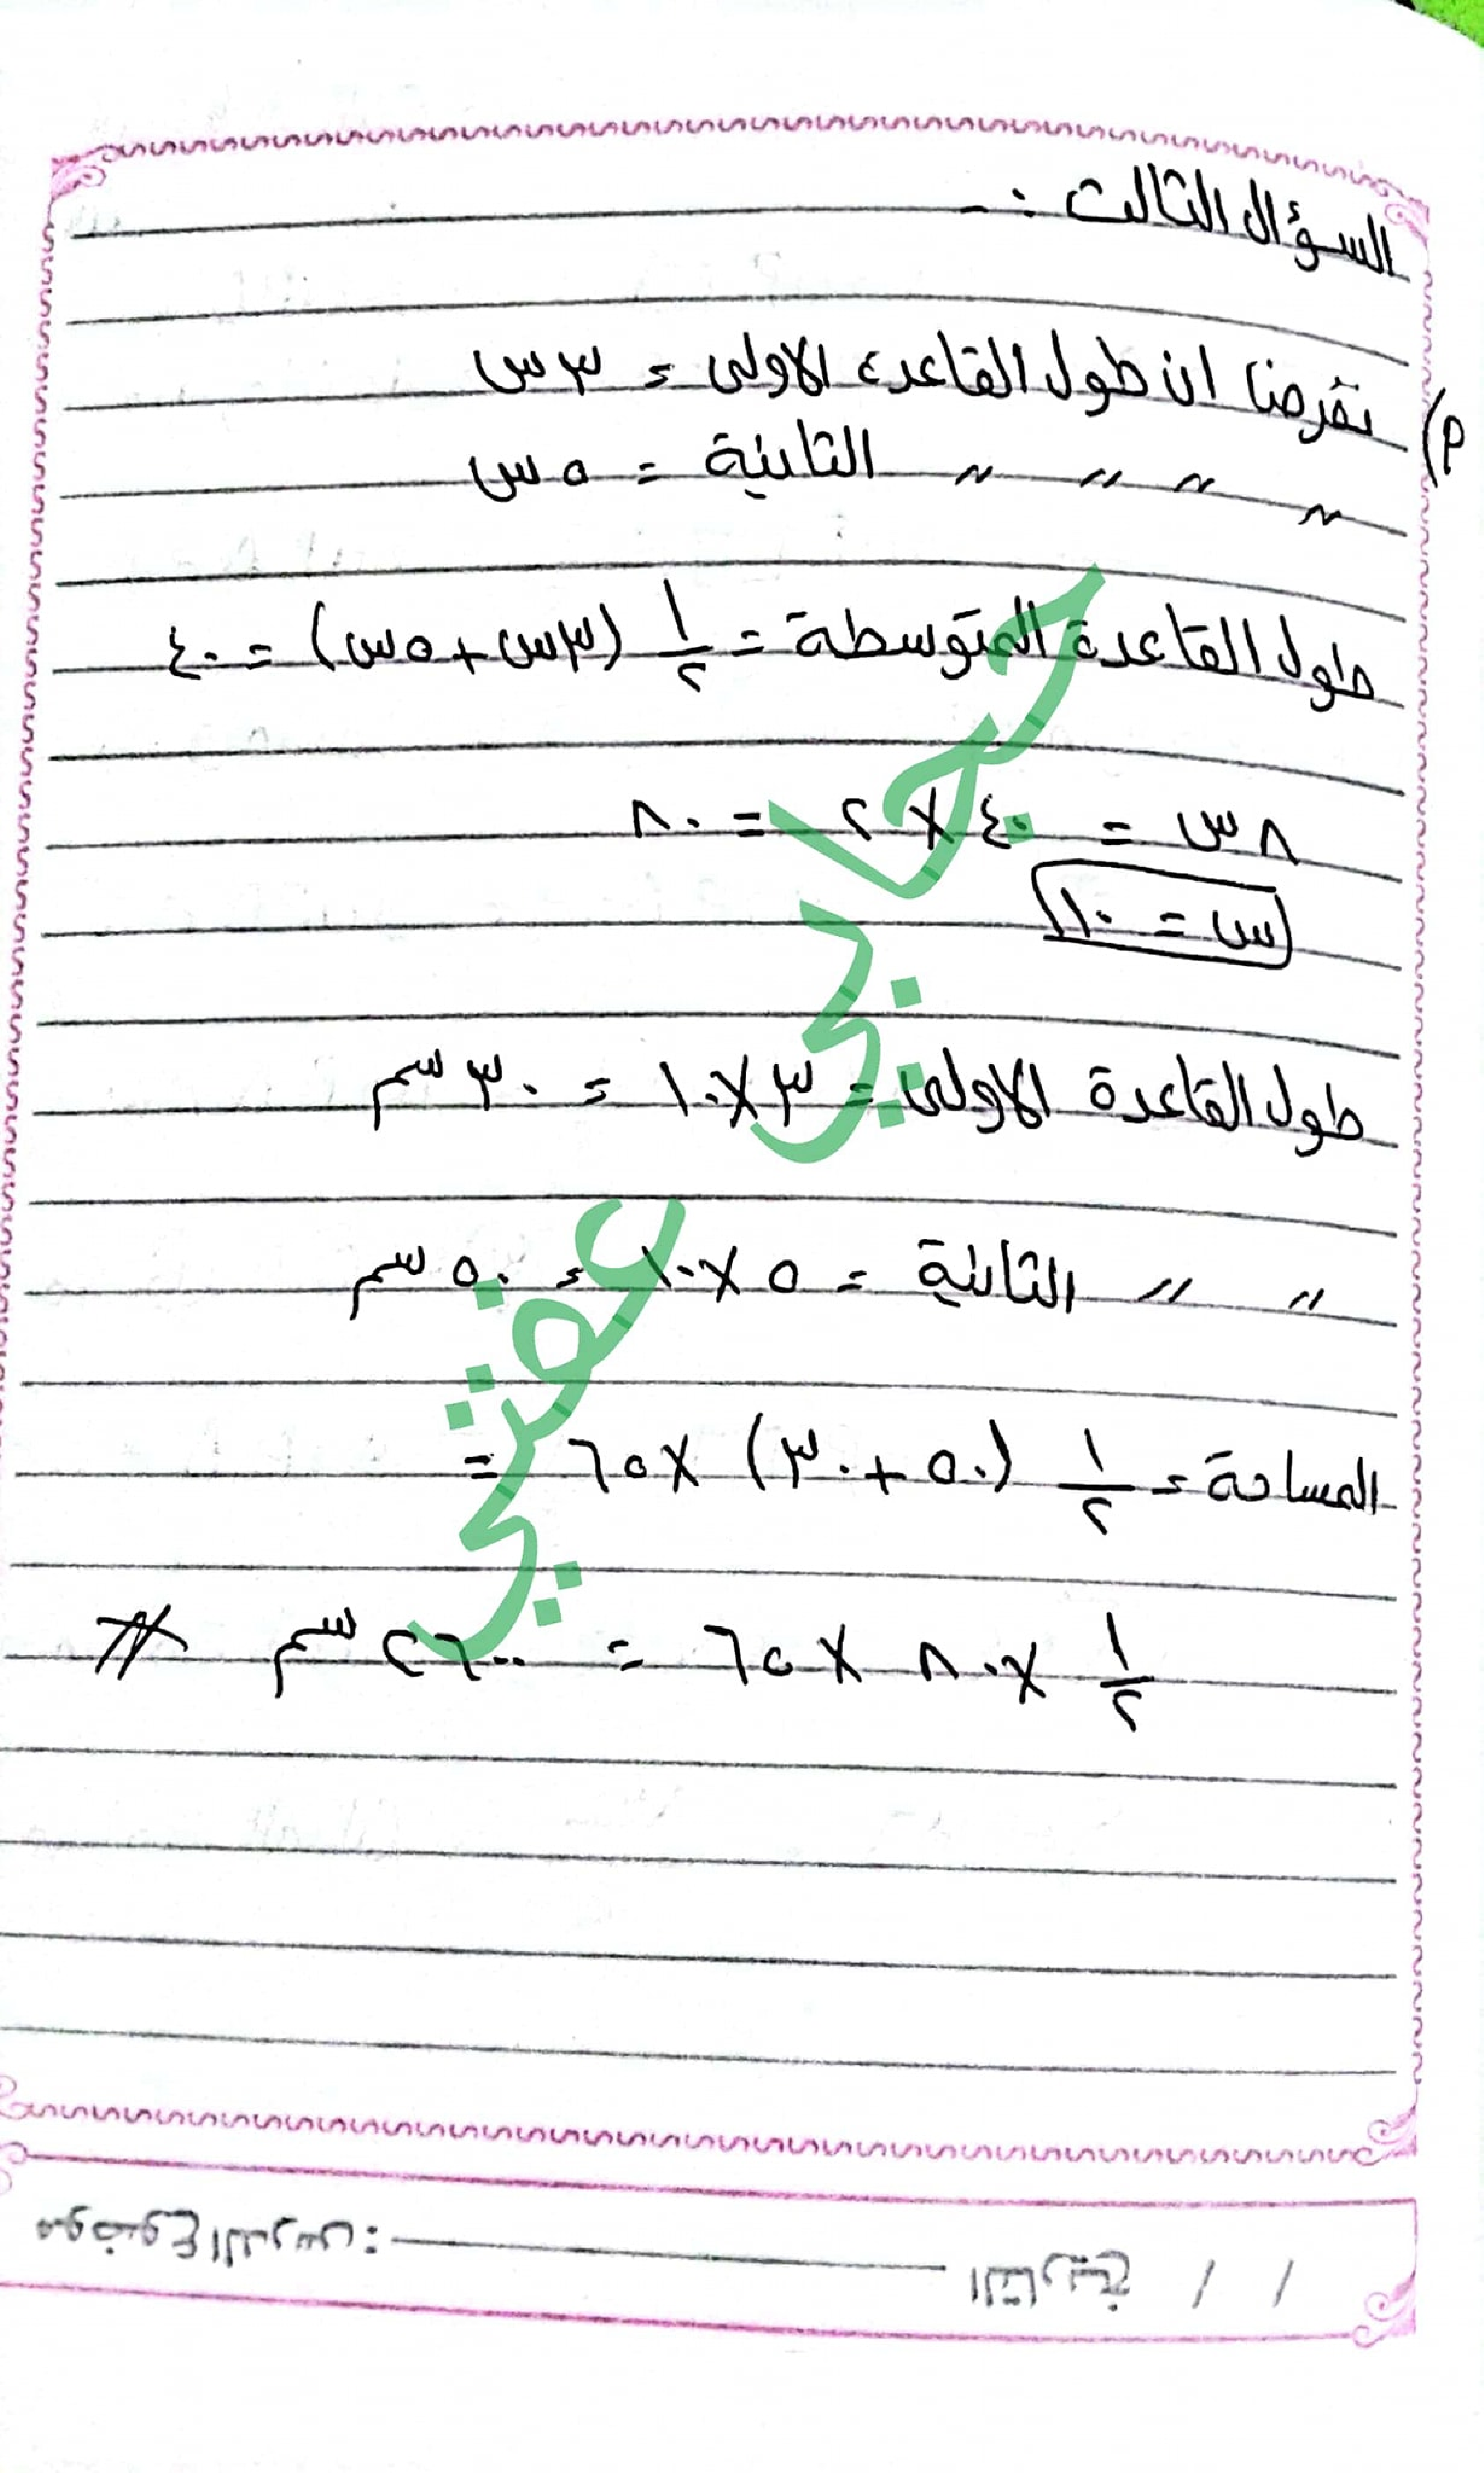 السؤال الثالث :-
م) نفرضنا ان طول القاعدة الاولى = ٣س
〃 〃 〃 〃 الثانية = ٥س
طول القاعدة المتوسطة = ١/٢ (٣س + ٥س) = ٤٠
٨س = ٤٠ × ٢ = ٨٠
س = ١٠
طول القاعدة الاولى = ٣ × ١٠ = ٣٠ سم
〃 〃 الثانية = ٥ × ١٠ = ٥٠ سم
المساحة = ١/٢ (٥٠ + ٣٠) × ٦٥ =
١/٢ × ٨٠ × ٦٥ = ٢٦٠٠ سم #
حجابي
عفتي
التاريخ / /
موضوع الدرس: